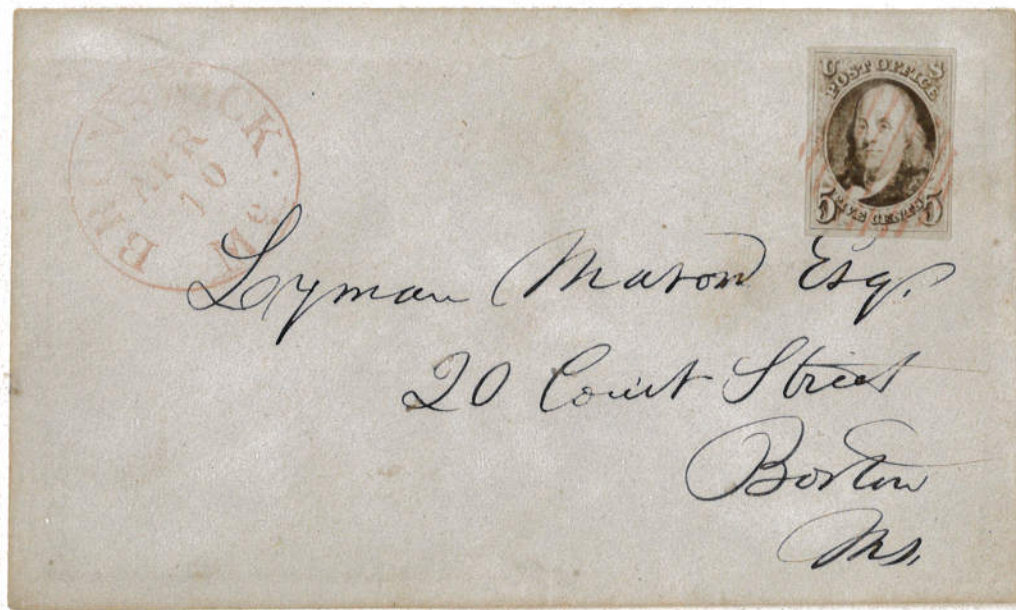 BRUNSWICK. Me
APR
10
U S
POST OFFICE
5 FIVE CENTS 5
Lyman Mason Esq.
20 Court Street
Boston
Ms.